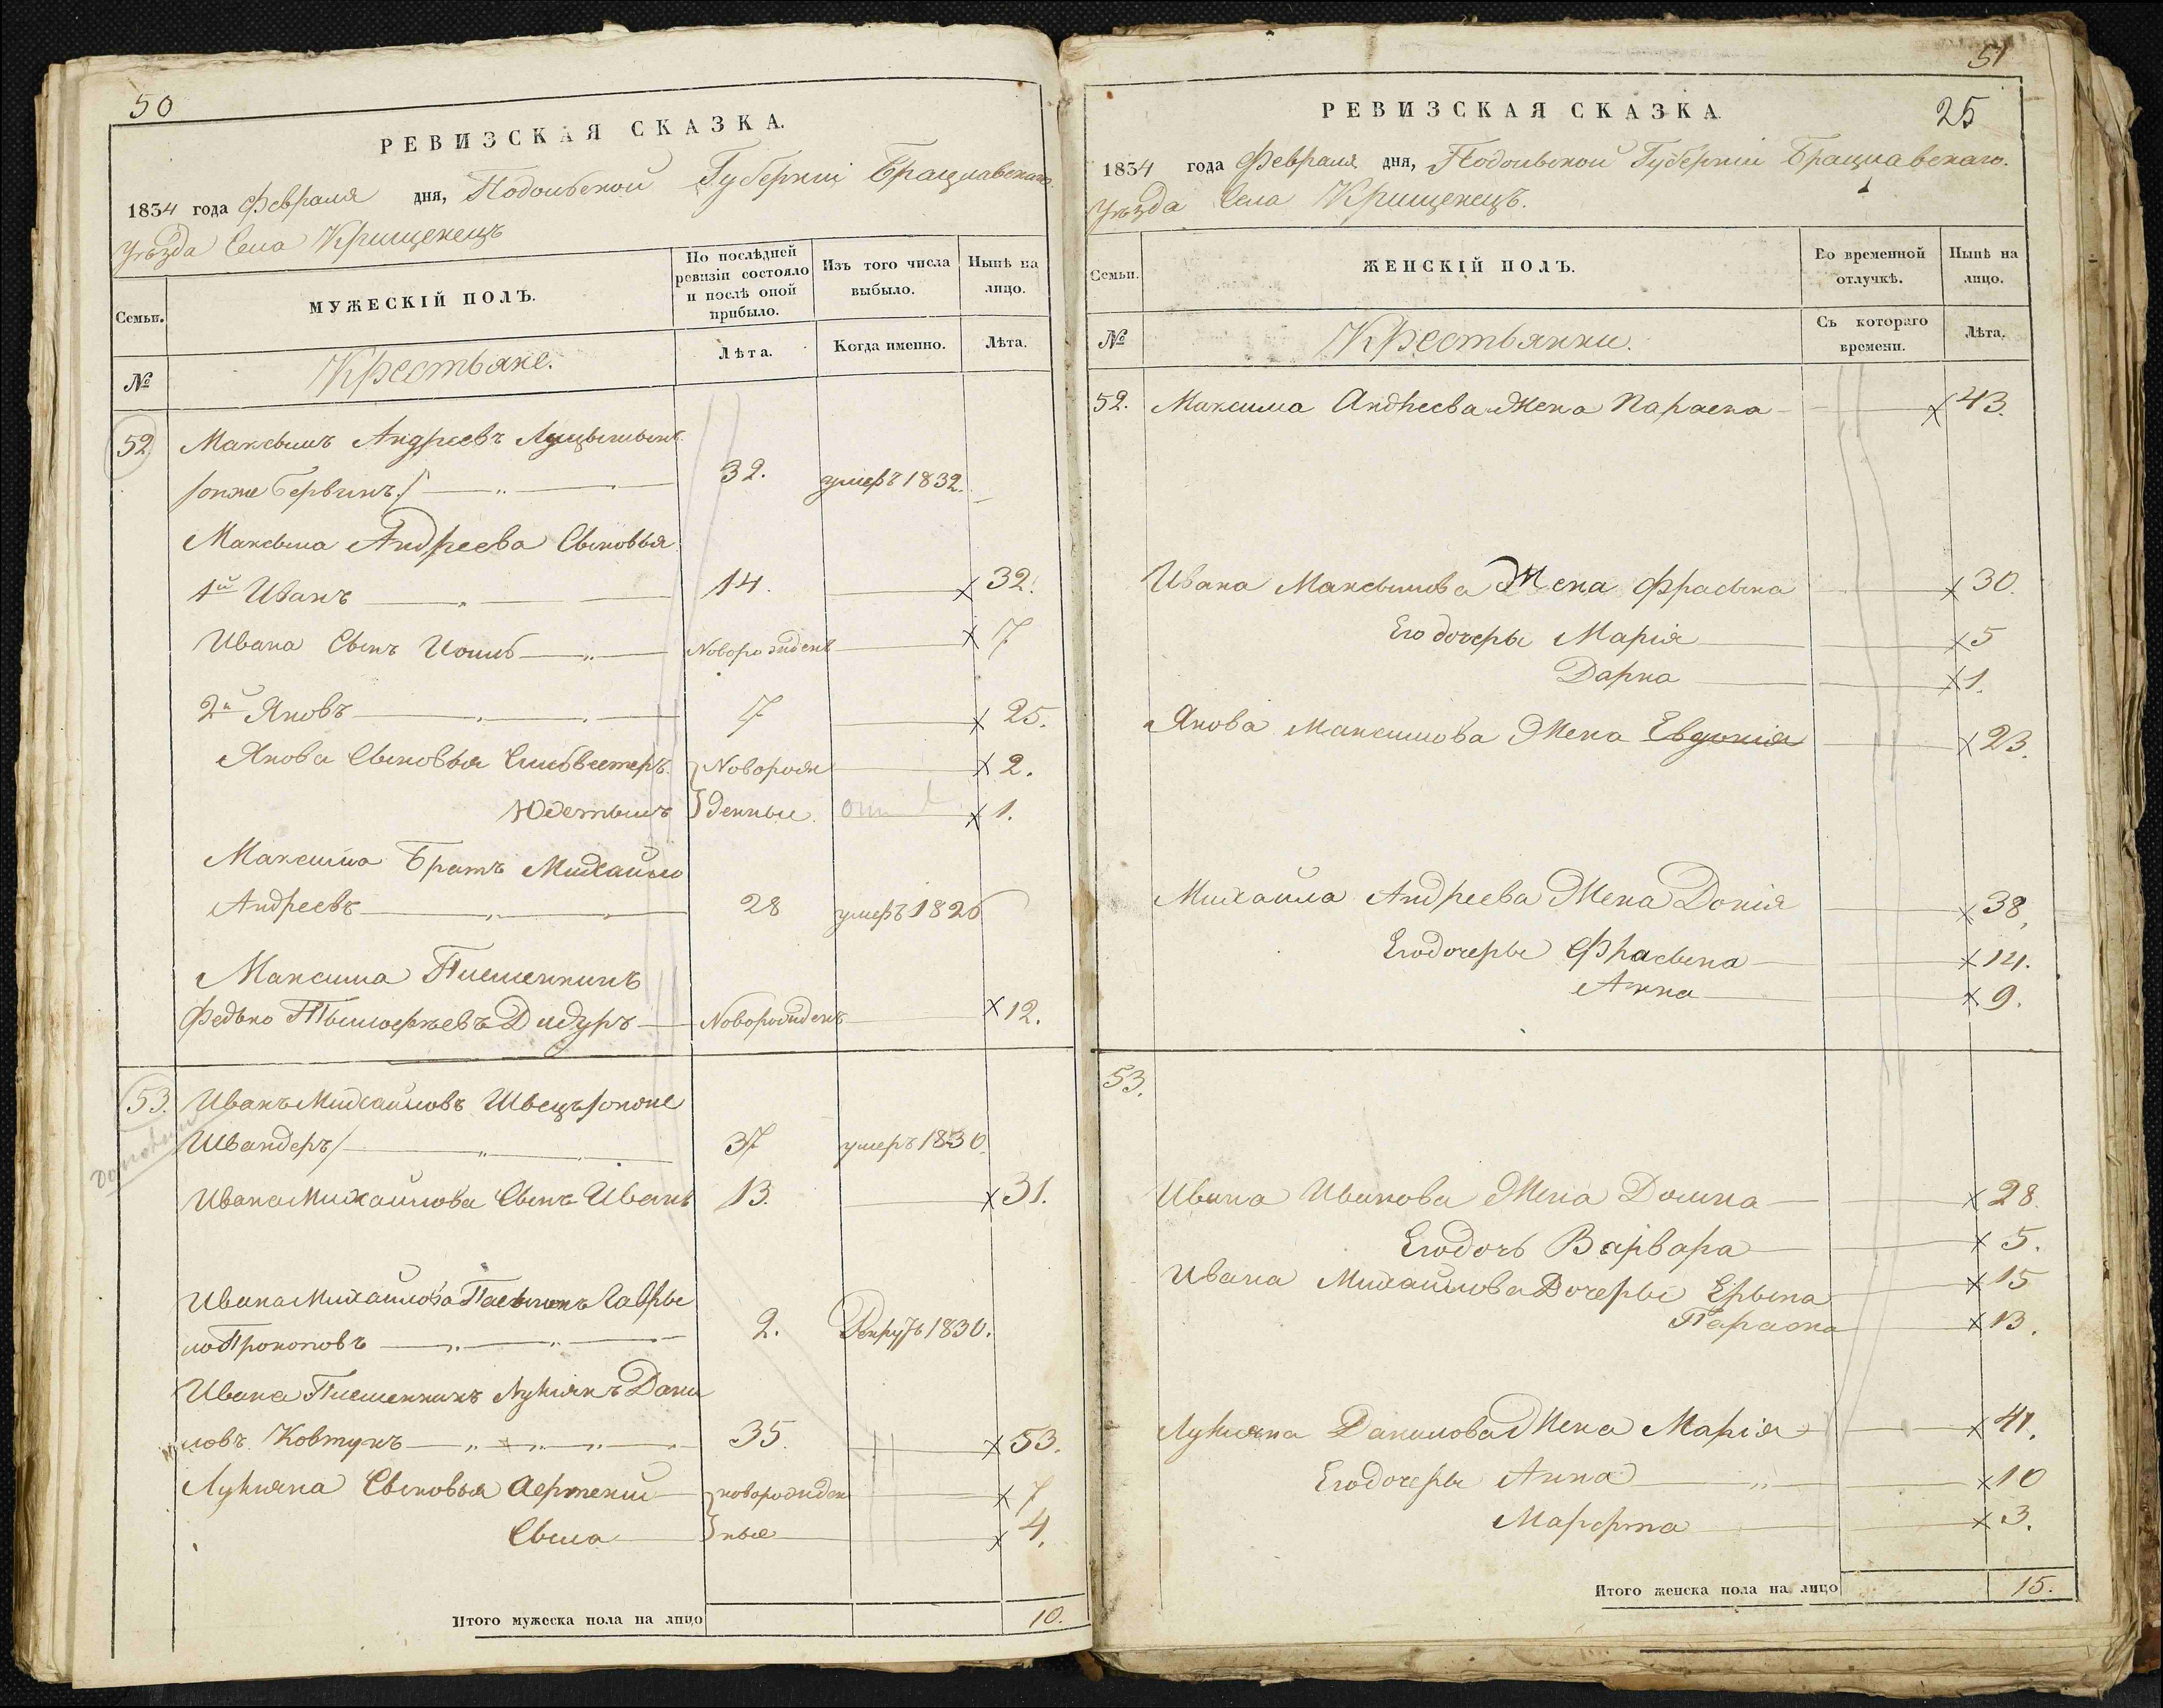 50
РЕВИЗСКАЯ СКАЗКА.
1834 года Февраля дня, Подольской Губерніи Брацлавскаго
Уѣзда Села Крищенецъ
Семьи.
МУЖЕСКІЙ ПОЛЪ.
По послѣдней ревизіи состояло и послѣ оной прибыло.
Изъ того числа выбыло.
Нынѣ на лицо.
№
Крестьяне.
Лѣта.
Когда именно.
Лѣта.
52 Максымъ Андреевъ
/онже Бервикъ/ 32. умеръ 1832.
Максыма Андреева Сыновья
1й Иванъ 14. 32.
Ивана Сынъ Новорожденъ 7
2й Яковъ 7 25.
Якова Сыновья Сильвестеръ Новорож 2.
Юстынъ денные 1.
Максима Братъ Михайло
Андреевъ 28 умеръ 1826
Максима Племенникъ
Федько Тымофѣевъ Дидуръ Новорожденъ 12.
53. Иванъ Михайловъ Швецъ /онже
Швандеръ/ 37 умеръ 1830.
Ивана Михайлова Сынъ Иванъ 13. 31.
Ивана Михайлова Пасынокъ Гаври
ло Прокоповъ 2. Рекрутъ 1830.
Ивана Племенникъ Лукіянъ Дани
ловъ Ковтунъ 35. 53.
Лукіяна Сыновья Артемій новорожден 7
Сыла ные 4.
Итого мужеска пола на лицо 10.
51
25
РЕВИЗСКАЯ СКАЗКА
1834 года Февраля дня, Подольской Губерніи Брацлавскаго.
Уѣзда Села Крищенецъ.
Семьи.
ЖЕНСКІЙ ПОЛЪ.
Во временной отлучкѣ.
Нынѣ на лицо.
№
Крестьянки.
Съ котораго времени.
Лѣта.
52. Максима Андреева Жена Параска 43.
Ивана Максымова Жена Фрасына 30.
Его дочеры Марія 5
Дарка 1.
Якова Максимова Жена Евдокія 23.
Михайла Андреева Жена Докія 38,
Его дочеры Фрасына 14.
Анна 9.
53.
Ивана Иванова Жена Домна 28.
Его дочь Варвара 5.
Ивана Михайлова Дочеры Ерына 15
Параска 13.
Лукіяна Данилова Жена Марія 41.
Его дочеры Анна 10
Марфта 3.
Итого женска пола на лицо 15.